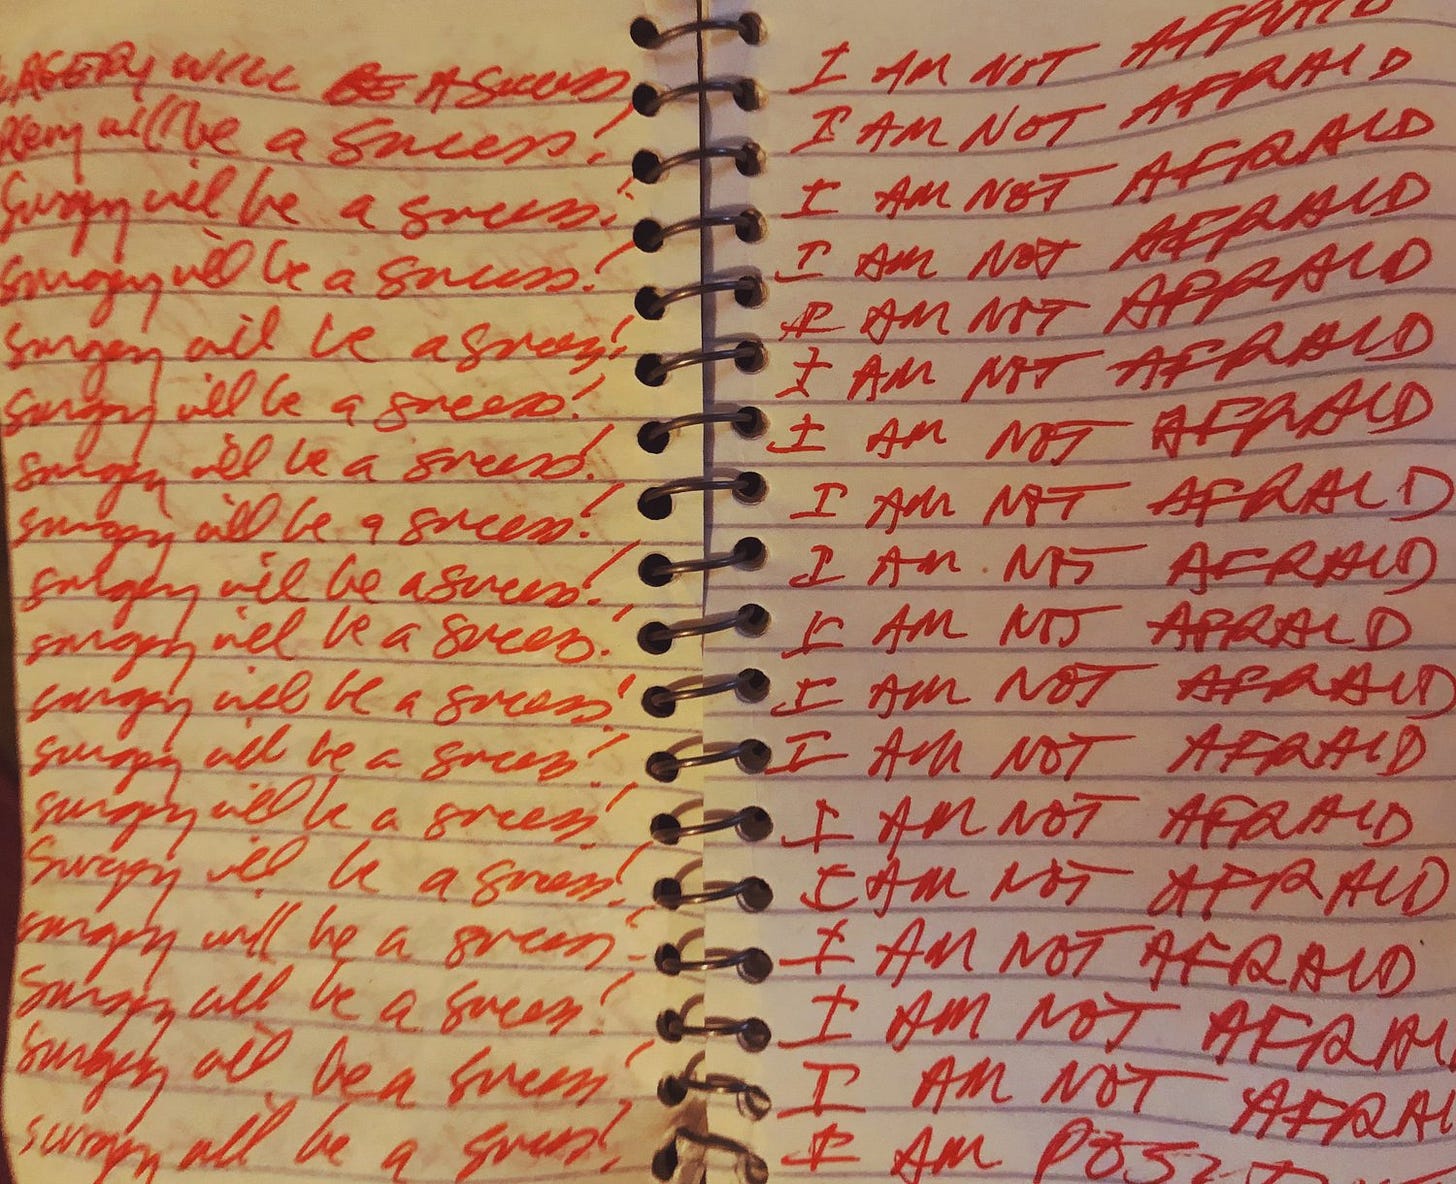 SURGERY WILL BE A SUCCESS
Surgery will be a success!
Surgery will be a success!
Surgery will be a success!
Surgery will be a success!
Surgery will be a success!
Surgery will be a success!
Surgery will be a success!
Surgery will be a success!
Surgery will be a success!
Surgery will be a success!
Surgery will be a success!
Surgery will be a success!
Surgery will be a success!
Surgery will be a success!
Surgery will be a success!
Surgery will be a success!
Surgery will be a success!
I AM NOT AFRAID
I AM NOT AFRAID
I AM NOT AFRAID
I AM NOT AFRAID
I AM NOT AFRAID
I AM NOT AFRAID
I AM NOT AFRAID
I AM NOT AFRAID
I AM NOT AFRAID
I AM NOT AFRAID
I AM NOT AFRAID
I AM NOT AFRAID
I AM NOT AFRAID
I AM NOT AFRAID
I AM NOT AFRAID
I AM NOT AFRAI
I AM NOT AFRAI
I AM POSITIV